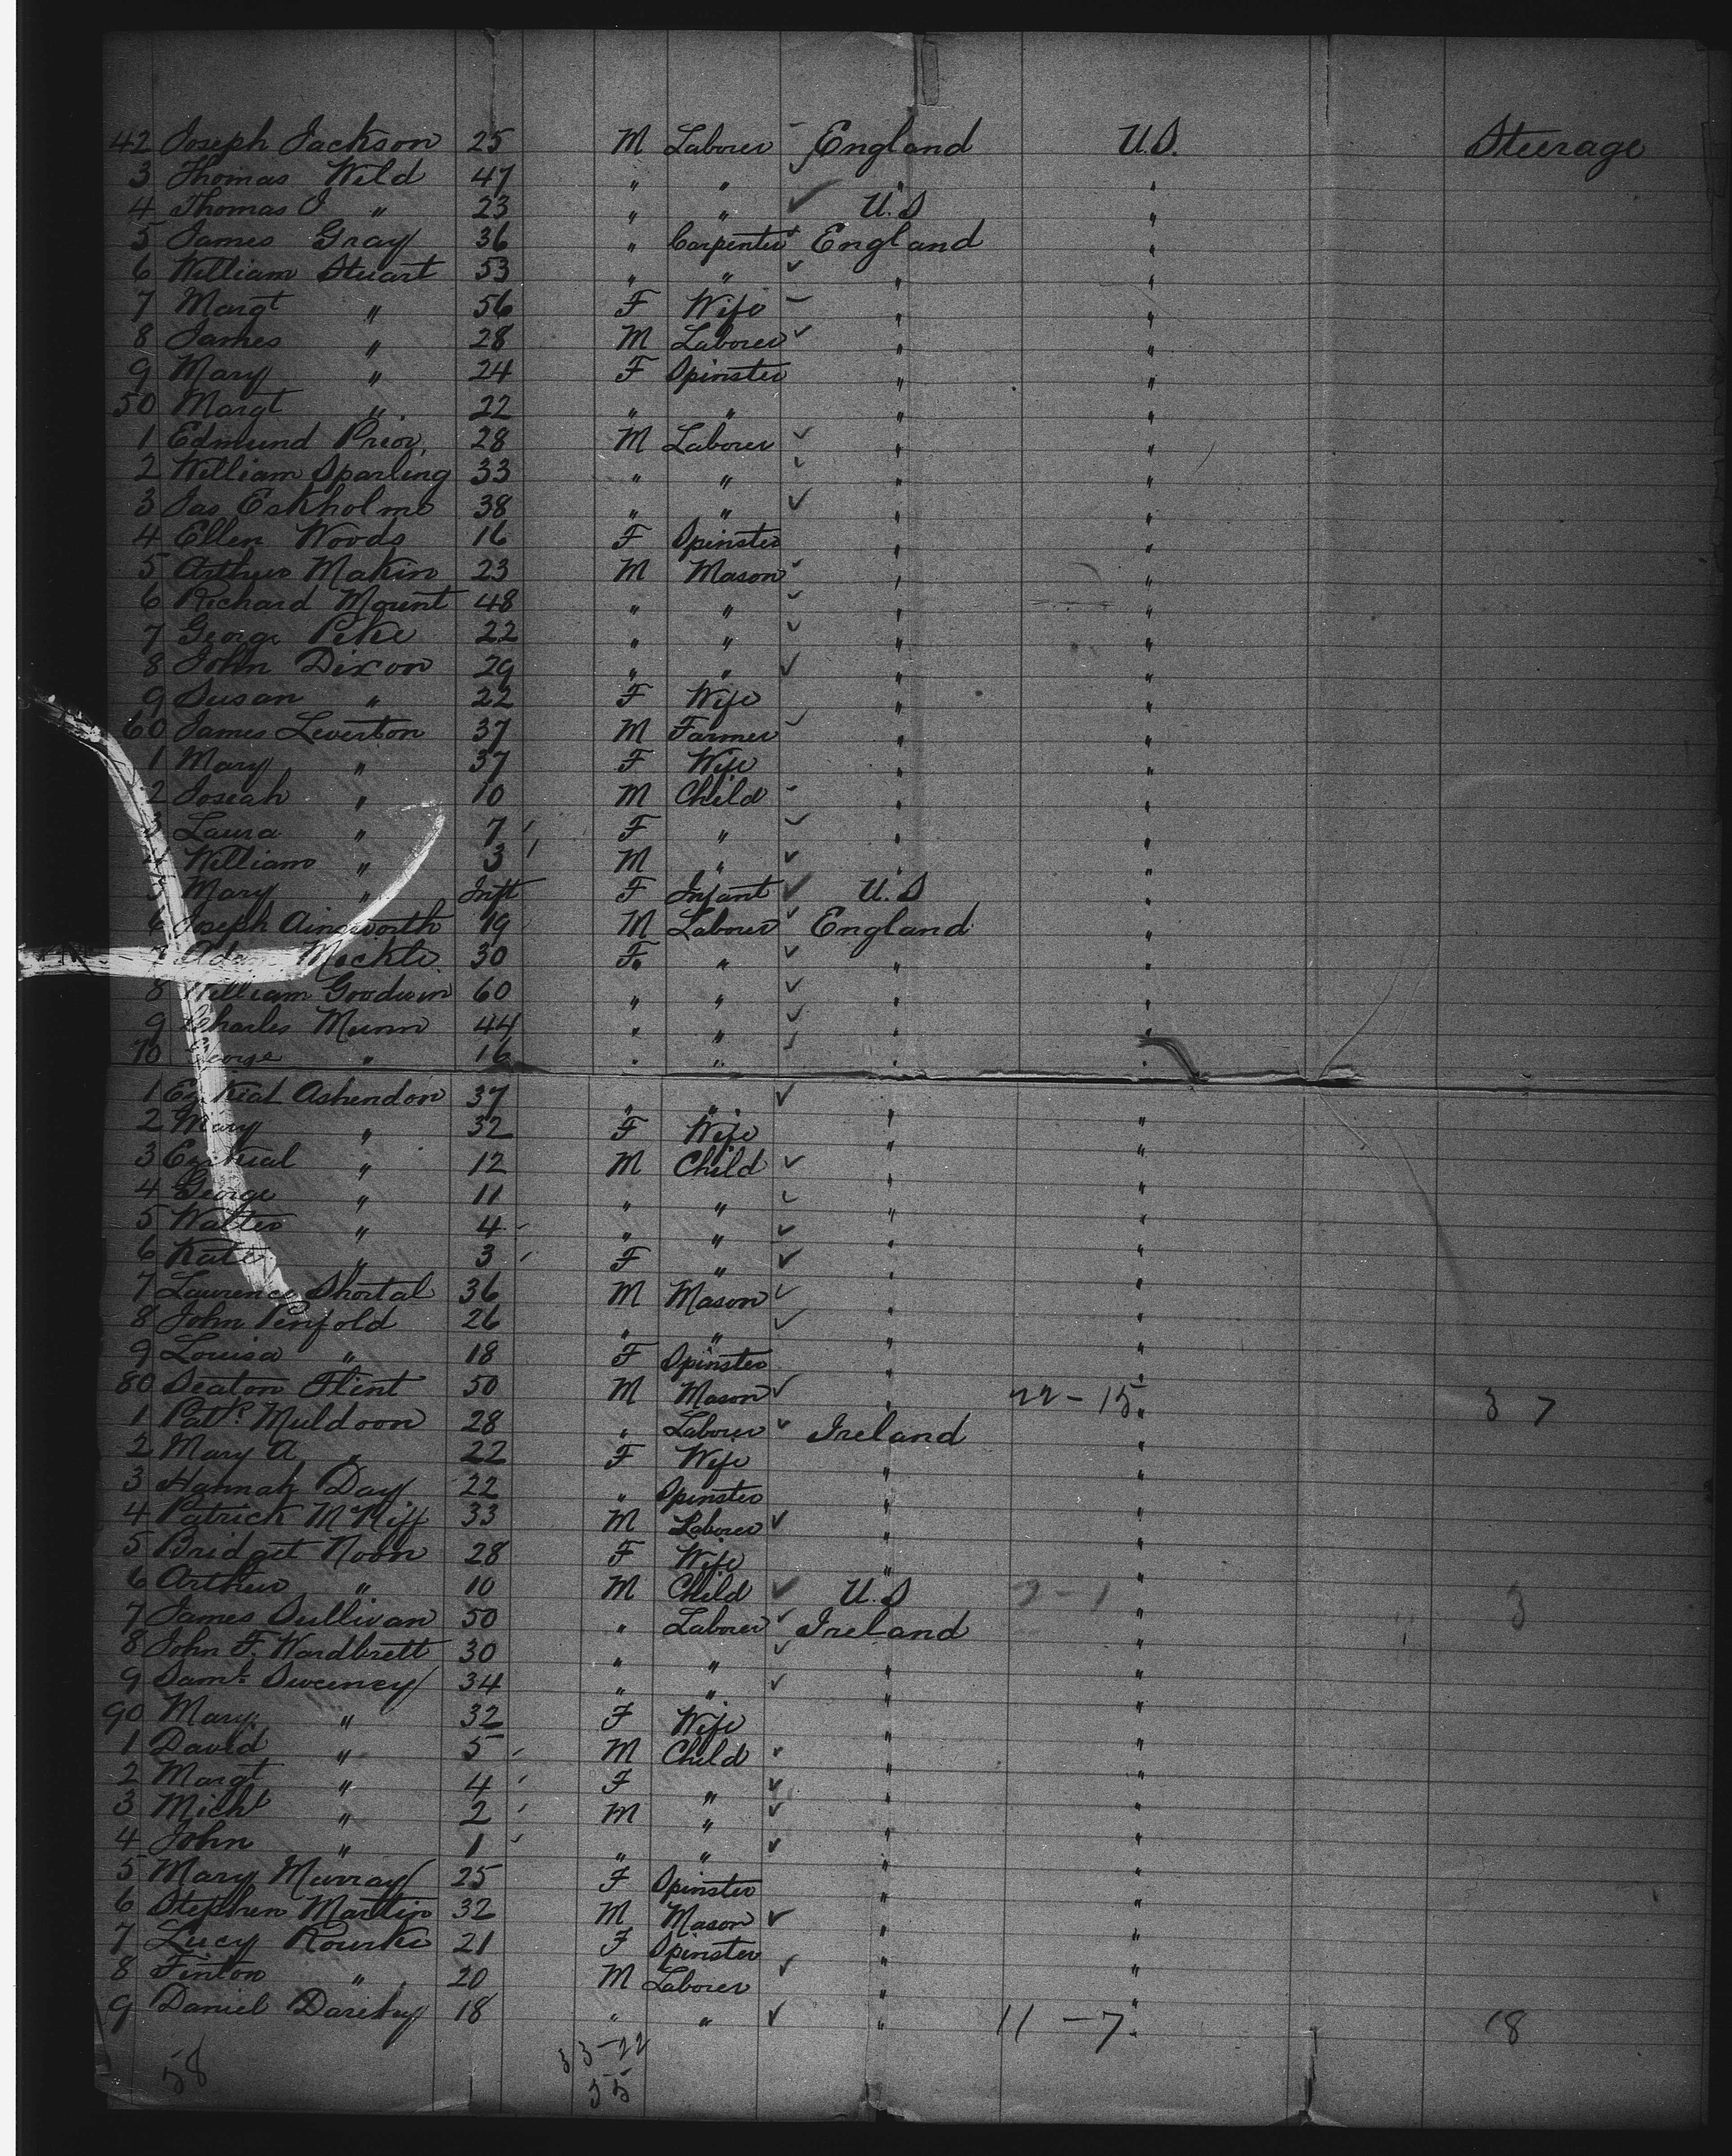 42 Joseph Jackson 25 M Laborer England U.S. Steerage
3 Thomas Wild 47 " " " "
4 Thomas J " 23 " " U.S "
5 James Gray 36 " Carpenter England "
6 William Stuart 53 " " " "
7 Margt " 56 F Wife " "
8 James " 28 M Laborer " "
9 Mary " 24 F Spinster " "
50 Margt " 22 " " " "
1 Edmund Prior 28 M Laborer " "
2 William Sparling 33 " " " "
3 Jas Eskholme 38 " " " "
4 Ellen Woods 16 F Spinster " "
5 Arthur Makin 23 M Mason " "
6 Richard Mount 48 " " " "
7 George Pike 22 " " " "
8 John Dixon 29 " " " "
9 Susan " 22 F Wife " "
60 James Leverton 37 M Farmer " "
1 Mary " 37 F Wife " "
2 Josiah " 10 M Child " "
3 Laura " 7 F " " "
4 William " 3 M " " "
5 Mary " Inft F Infant U.S "
6 Joseph Ainsworth 19 M Laborer England "
7 Adam 30 F " " "
8 William Goodwin 60 " " " "
9 Charles Munn 44 " " " "
70 George " 16 " " " "
1 Ezekial Ashendon 37 " " " "
2 Mary " 32 F Wife " "
3 Ezekial " 12 M Child " "
4 George " 11 " " " "
5 Walter " 4 " " " "
6 Kate " 3 F " " "
7 Lawrence Shortal 36 M Mason " "
8 John Penfold 26 " " " "
9 Louisa " 18 F Spinster " "
80 Seaton Flint 50 M Mason " 22-15 " 37
1 Patk. Muldoon 28 " Laborer Ireland "
2 Mary A " 22 F Wife " "
3 Hannah Day 22 " Spinster " "
4 Patrick McNiff 33 M Laborer " "
5 Bridget Noon 28 F Wife " "
6 Arthur " 10 M Child U.S 2-1 " 3
7 James Sullivan 50 " Laborer Ireland "
8 John F. Wardbrett 30 " " " "
9 Saml. Sweeney 34 " " " "
90 Mary " 32 F Wife " "
1 David " 5 M Child " "
2 Margt " 4 F " " "
3 Michl " 2 M " " "
4 John " 1 " " " "
5 Mary Murray 25 F Spinster " "
6 Stephen Martin 32 M Mason " "
7 Lucy Rourke 21 F Spinster " "
8 Finton " 20 M Laborer " "
9 Daniel 18 " " " 11-7 " 18
58 33-22
55